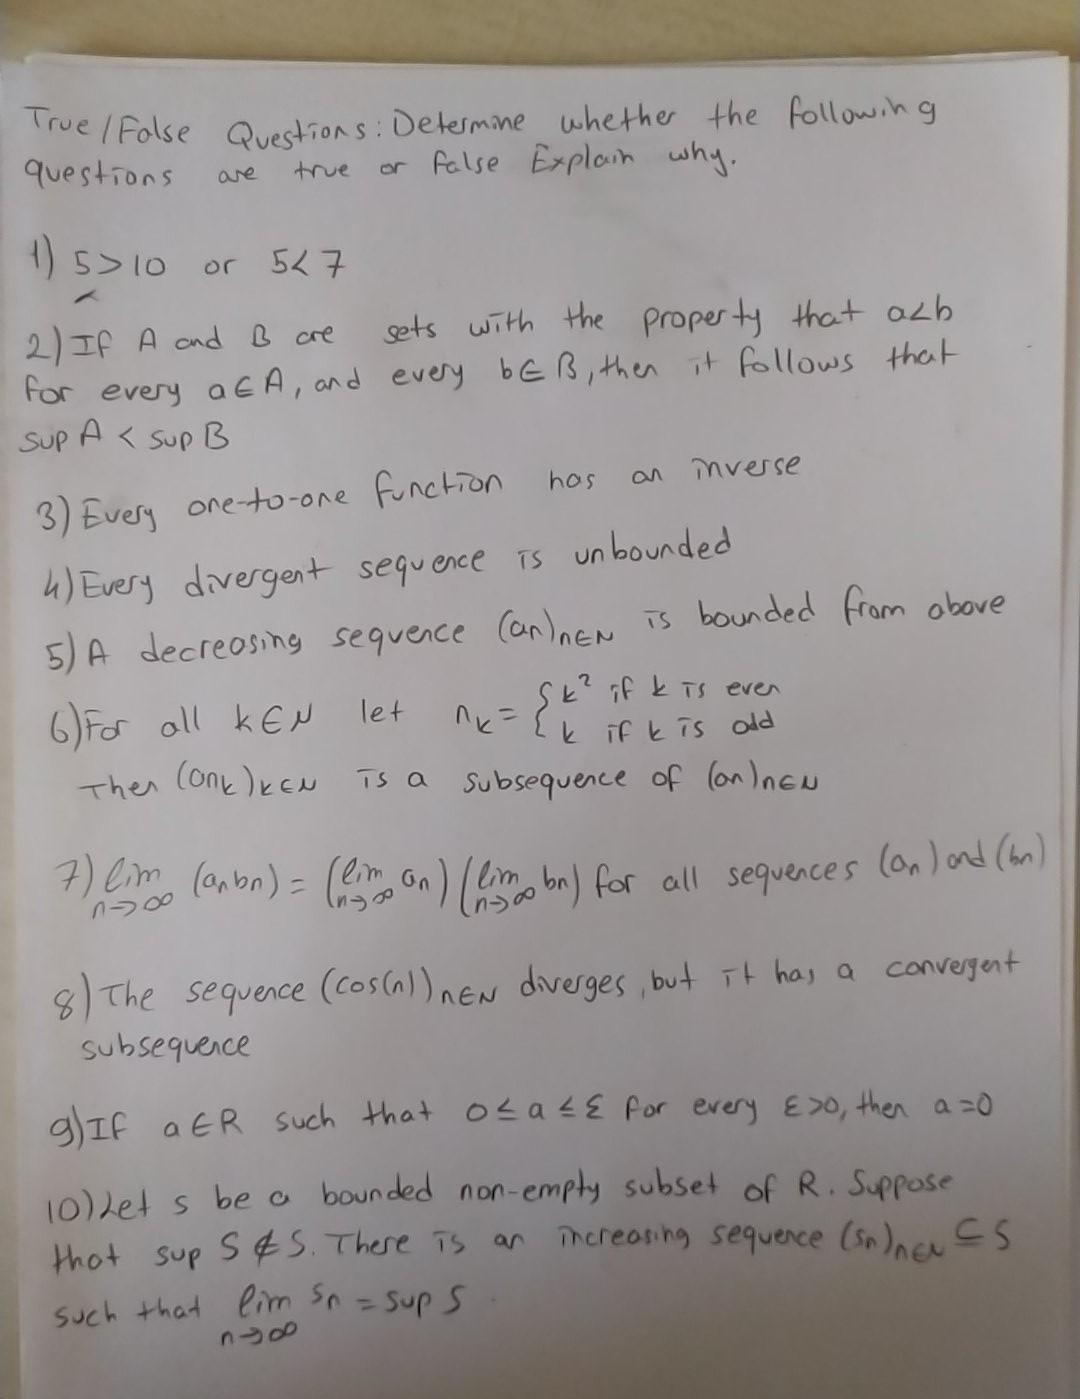 True/False Questions: Determine whether the following
questions are true or false Explain why.
1) 5>10 or 5<7
2) If A and B are sets with the property that a<b
for every a∈A, and every b∈B, then it follows that
sup A < sup B
3) Every one-to-one function has an inverse
4) Every divergent sequence is unbounded
5) A decreasing sequence (an)n∈N is bounded from above
6) For all k∈N let nk = { k² if k is even
k if k is odd
Then (ank)k∈N is a subsequence of (an)n∈N
7) lim n→∞ (anbn) = (lim n→∞ an) (lim n→∞ bn) for all sequences (an) and (bn)
8) The sequence (cos(n))n∈N diverges, but it has a convergent
subsequence
9) If a∈R such that 0≤a≤ε for every ε>0, then a=0
10) Let s be a bounded non-empty subset of R. Suppose
that sup S∉S. There is an increasing sequence (sn)n∈N ⊆ S
such that lim n→∞ sn = sup S